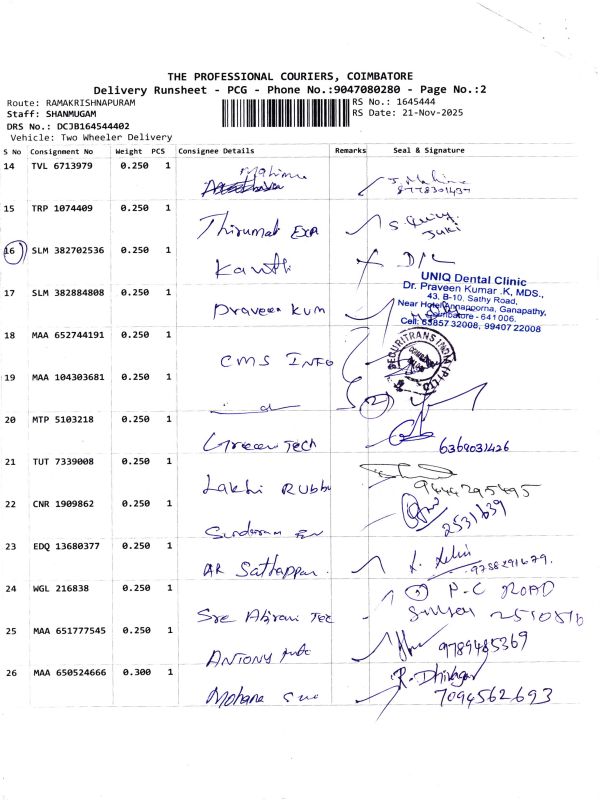 THE PROFESSIONAL COURIERS, COIMBATORE
Delivery Runsheet - PCG - Phone No.:9047080280 - Page No.:2
Route: RAMAKRISHNAPURAM
RS No.: 1645444
Staff: SHANMUGAM
RS Date: 21-Nov-2025
DRS No.: DCJB164544402
Vehicle: Two Wheeler Delivery
S No Consignment No Weight PCS Consignee Details Remarks Seal & Signature
14 TVL 6713979 0.250 1
8778301437
15 TRP 1074409 0.250 1
Thirumal Exp
16 SLM 382702536 0.250 1
Kanthi D/L
17 SLM 382884808 0.250 1
Praveen Kum
UNIQ Dental Clinic
Dr. Praveen Kumar .K, MDS.,
43, B-10, Sathy Road,
Near Hotel Annapporna, Ganapathy,
Coimbatore - 641 006.
Cell: 63857 32008, 99407 22008
18 MAA 652744191 0.250 1
CMS INFO
SECURITRANS INDIA (P) LTD
19 MAA 104303681 0.250 1
(2)
20 MTP 5103218 0.250 1
Green Tech
6369031426
21 TUT 7339008 0.250 1
Lakhi Rubbu
9444295495
22 CNR 1909862 0.250 1
2531639
23 EDQ 13680377 0.250 1
AR Sathappan.
24 WGL 216838 0.250 1
P-C ROAD
Sre Abirami Tex
25 MAA 651777545 0.250 1
ANTONY
9789485369
26 MAA 650524666 0.300 1
Mohana
R. Dhivagar
7094562693